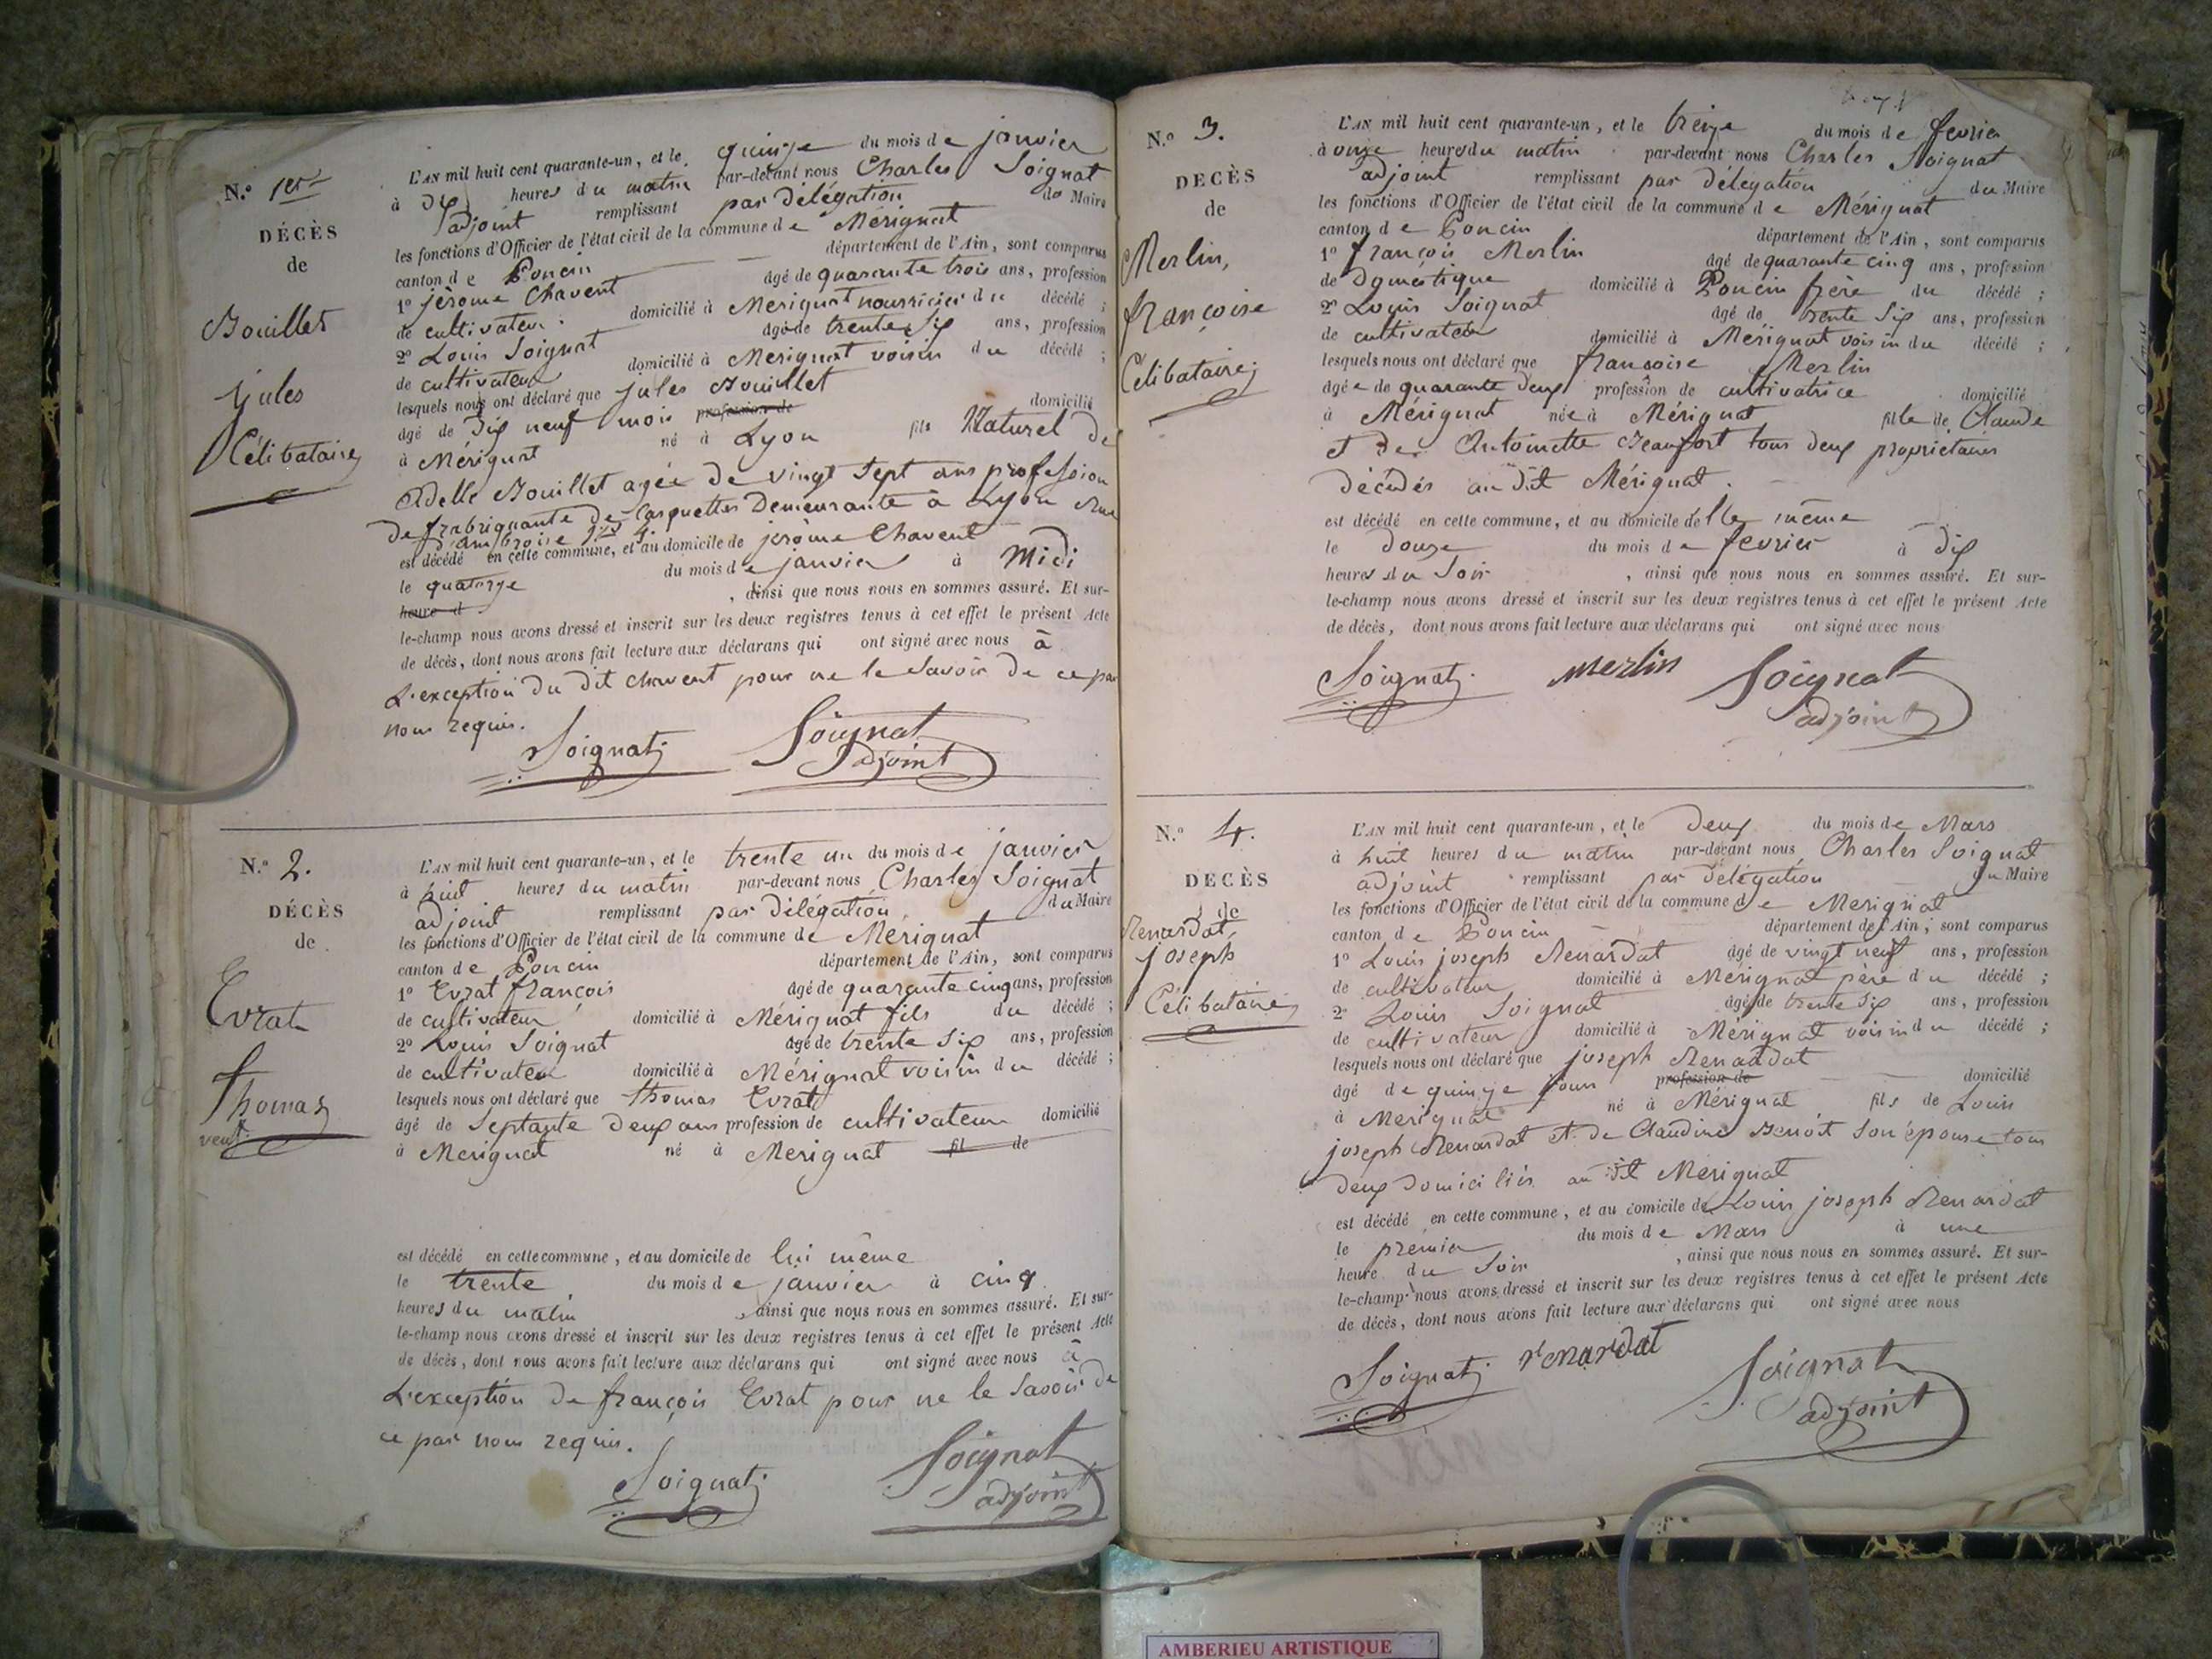 N.º 1er
DÉCÈS
de
Bouillet
jules
Célibataire
L'AN mil huit cent quarante-un, et le quinze du mois de janvier
à dix heures du matin par-devant nous Charles Soignat
adjoint remplissant par délégation du Maire
les fonctions d'Officier de l'état civil de la commune de Mérignat
canton de Poncin département de l'Ain, sont comparus
1º jérome Chavent âgé de quarante trois ans, profession
de cultivateur domicilié à Merignat nourricier du décédé ;
2º Louis Soignat âgé de trente six ans, profession
de cultivateur domicilié à Merignat voisin du décédé ;
lesquels nous ont déclaré que jules Bouillet
âgé de dix neuf mois profession de domicilié
à Mérignat né à Lyon fils Naturel de
Adelle Bouillet agée de vingt sept ans profession
de frabriquante de Casquettes Demeurante à Lyon Rue
d'ambroise
est décédé en cette commune, et au domicile de jérôme Chavent
le quatorze du mois de janvier à Midi
heure d , ainsi que nous nous en sommes assuré. Et sur-
le-champ nous avons dressé et inscrit sur les deux registres tenus à cet effet le présent Acte
de décès, dont nous avons fait lecture aux déclarans qui ont signé avec nous à
L'exception du dit chavent pour ne le savoir de ce par
nous requis.
Soignat Soignat
adjoint
N.º 2.
DÉCÈS
de
Evrat
Thomas
veuf.
L'AN mil huit cent quarante-un, et le trente un du mois de janvier
à huit heures du matin par-devant nous Charles Soignat
adjoint remplissant par délégation du Maire
les fonctions d'Officier de l'état civil de la commune de Merignat
canton de Poncin département de l'Ain, sont comparus
1º Evrat françois âgé de quarante cinq ans, profession
de cultivateur domicilié à Mérignat fils du décédé ;
2º Louis Soignat âgé de trente six ans, profession
de cultivateur domicilié à Mérignat voisin du décédé ;
lesquels nous ont déclaré que thomas Evrat
âgé de Septante deux ans profession de cultivateur domicilié
à Merignat né à Merignat fil de
est décédé en cette commune, et au domicile de lui même
le trente du mois de janvier à cinq
heures du matin , ainsi que nous nous en sommes assuré. Et sur-
le-champ nous avons dressé et inscrit sur les deux registres tenus à cet effet le présent Acte
de décès, dont nous avons fait lecture aux déclarans qui ont signé avec nous à
L'exception de françois Evrat pour ne le savoir de
ce par nous requis.
Soignat Soignat
adjoint
N.º 3.
DECÈS
de
Merlin,
françoise
Célibataire
L'AN mil huit cent quarante-un, et le treize du mois de fevrier
à onze heures du matin par-devant nous Charles Soignat
adjoint remplissant par délégation du Maire
les fonctions d'Officier de l'état civil de la commune de Mérignat
canton de Poncin département de l'Ain, sont comparus
1º françois Merlin âgé de quarante cinq ans, profession
de Domestique domicilié à Poncin frère du décédé ;
2º Louis Soignat âgé de trente six ans, profession
de cultivateur domicilié à Mérignat voisin du décédé ;
lesquels nous ont déclaré que francoise Merlin
âgée de quarante deux profession de cultivatrice domicilié
à Mérignat née à Mérignat fille de Claude
et de Antoinette Beaufort tous deux propriétaires
décédés au dit Mérignat.
est décédé en cette commune, et au domicile delle même
le douze du mois de fevrier à dix
heures du soir , ainsi que nous nous en sommes assuré. Et sur-
le-champ nous avons dressé et inscrit sur les deux registres tenus à cet effet le présent Acte
de décès, dont nous avons fait lecture aux déclarans qui ont signé avec nous
Soignat merlin Soignat
adjoint
N.º 4.
DECÈS
de
Renardat,
joseph
Célibataire
L'AN mil huit cent quarante-un, et le deux du mois de Mars
à huit heures du matin par-devant nous Charles Soignat
adjoint remplissant par délégation du Maire
les fonctions d'Officier de l'état civil de la commune de Merignat
canton de Poncin département de l'Ain, sont comparus
1º Louis joseph Renardat âgé de vingt neuf ans, profession
de cultivateur domicilié à Mérignat père du décédé ;
2º Louis Soignat âgé de trente six ans, profession
de cultivateur domicilié à Mérignat voisin du décédé ;
lesquels nous ont déclaré que joseph Renardat
âgé de quinze jours profession de domicilié
à Merignat né à Mérignat fils de Louis
joseph Renardat et de Claudine Benoit son épouse tous
deux domiciliés au dit Merignat
est décédé en cette commune, et au domicile de Louis joseph Renardat
le premier du mois de Mars à une
heure du soir , ainsi que nous nous en sommes assuré. Et sur-
le-champ nous avons dressé et inscrit sur les deux registres tenus à cet effet le présent Acte
de décès, dont nous avons fait lecture aux déclarans qui ont signé avec nous
Soignat renardat Soignat
adjoint
AMBERIEU ARTISTIQUE